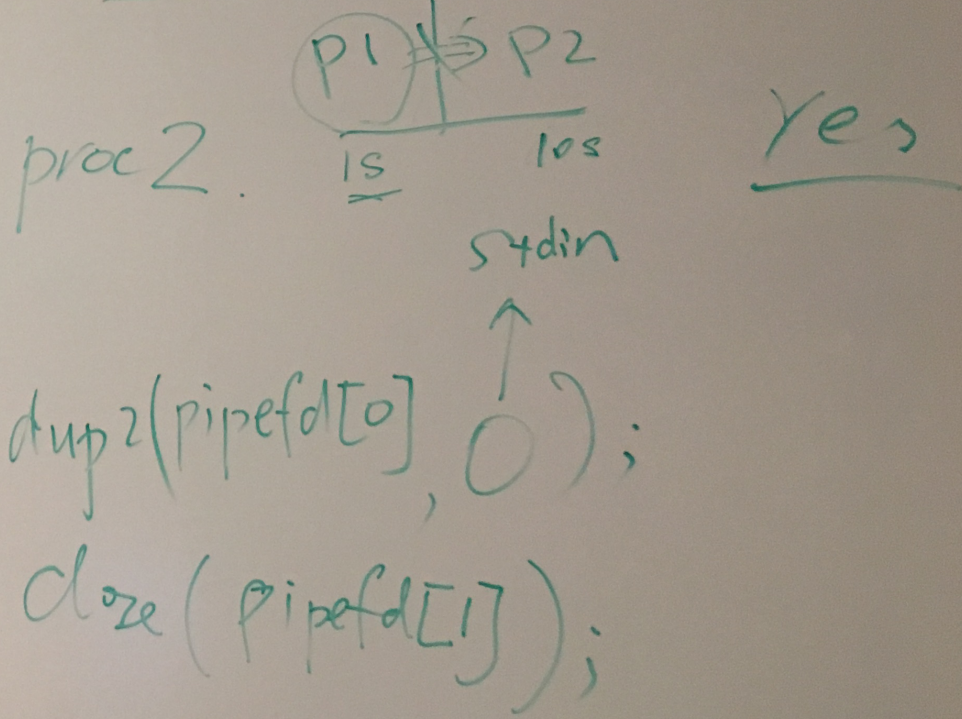 p1 ⇒ p2
proc2. 1s 10s Yes
stdin
↑
dup2(pipefd[0], 0);
close(pipefd[1]);